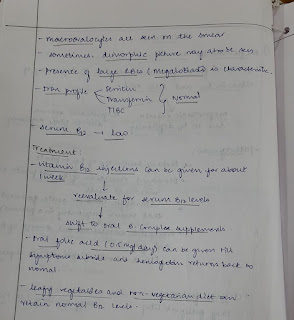 - macroovalocytes are seen on the smear
- sometimes dimorphic picture may also be seen
- presence of large RBCs (Megaloblasts) is characteristic.
- Iron profile
Ferritin
Transferrin
TIBC
Normal
- serum B12 → low
Treatment:
- vitamin B12 injections can be given for about
1 week
reevaluate for serum B12 levels
shift to oral B complex supplements
- Oral folic acid (0.5mg/day) can be given till
symptoms subside and hemoglobin returns back to
normal.
- leafy vegetables and non-vegetarian diet can
normal B12 levels.